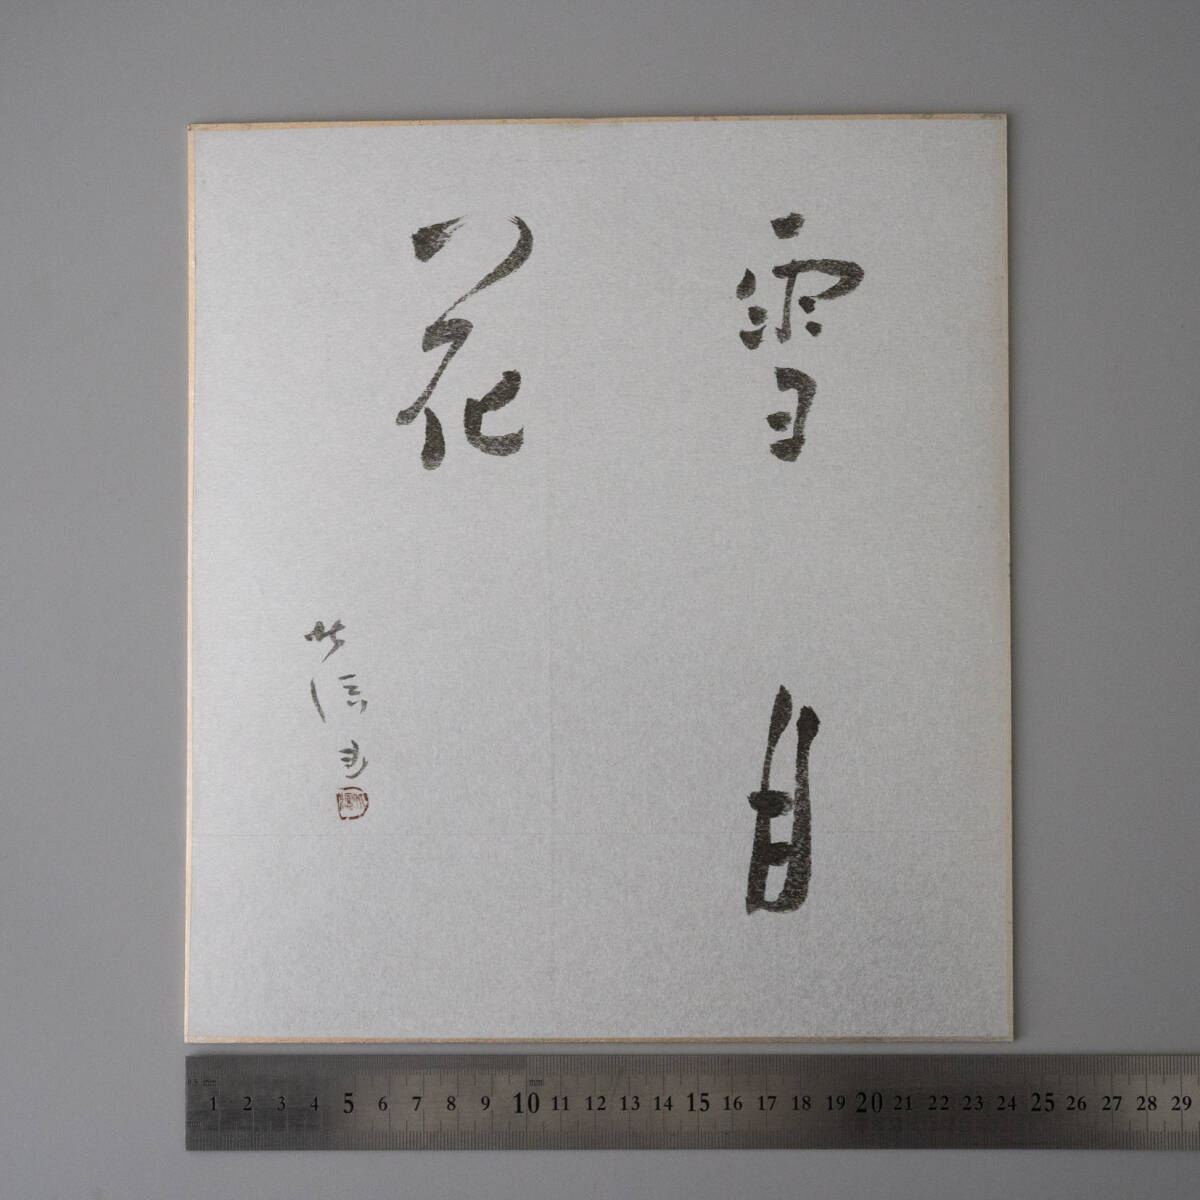 雪月
花
0.5 mm mm
1 2 3 4 5 6 7 8 9 10 11 12 13 14 15 16 17 18 19 20 21 22 23 24 25 26 27 28 29